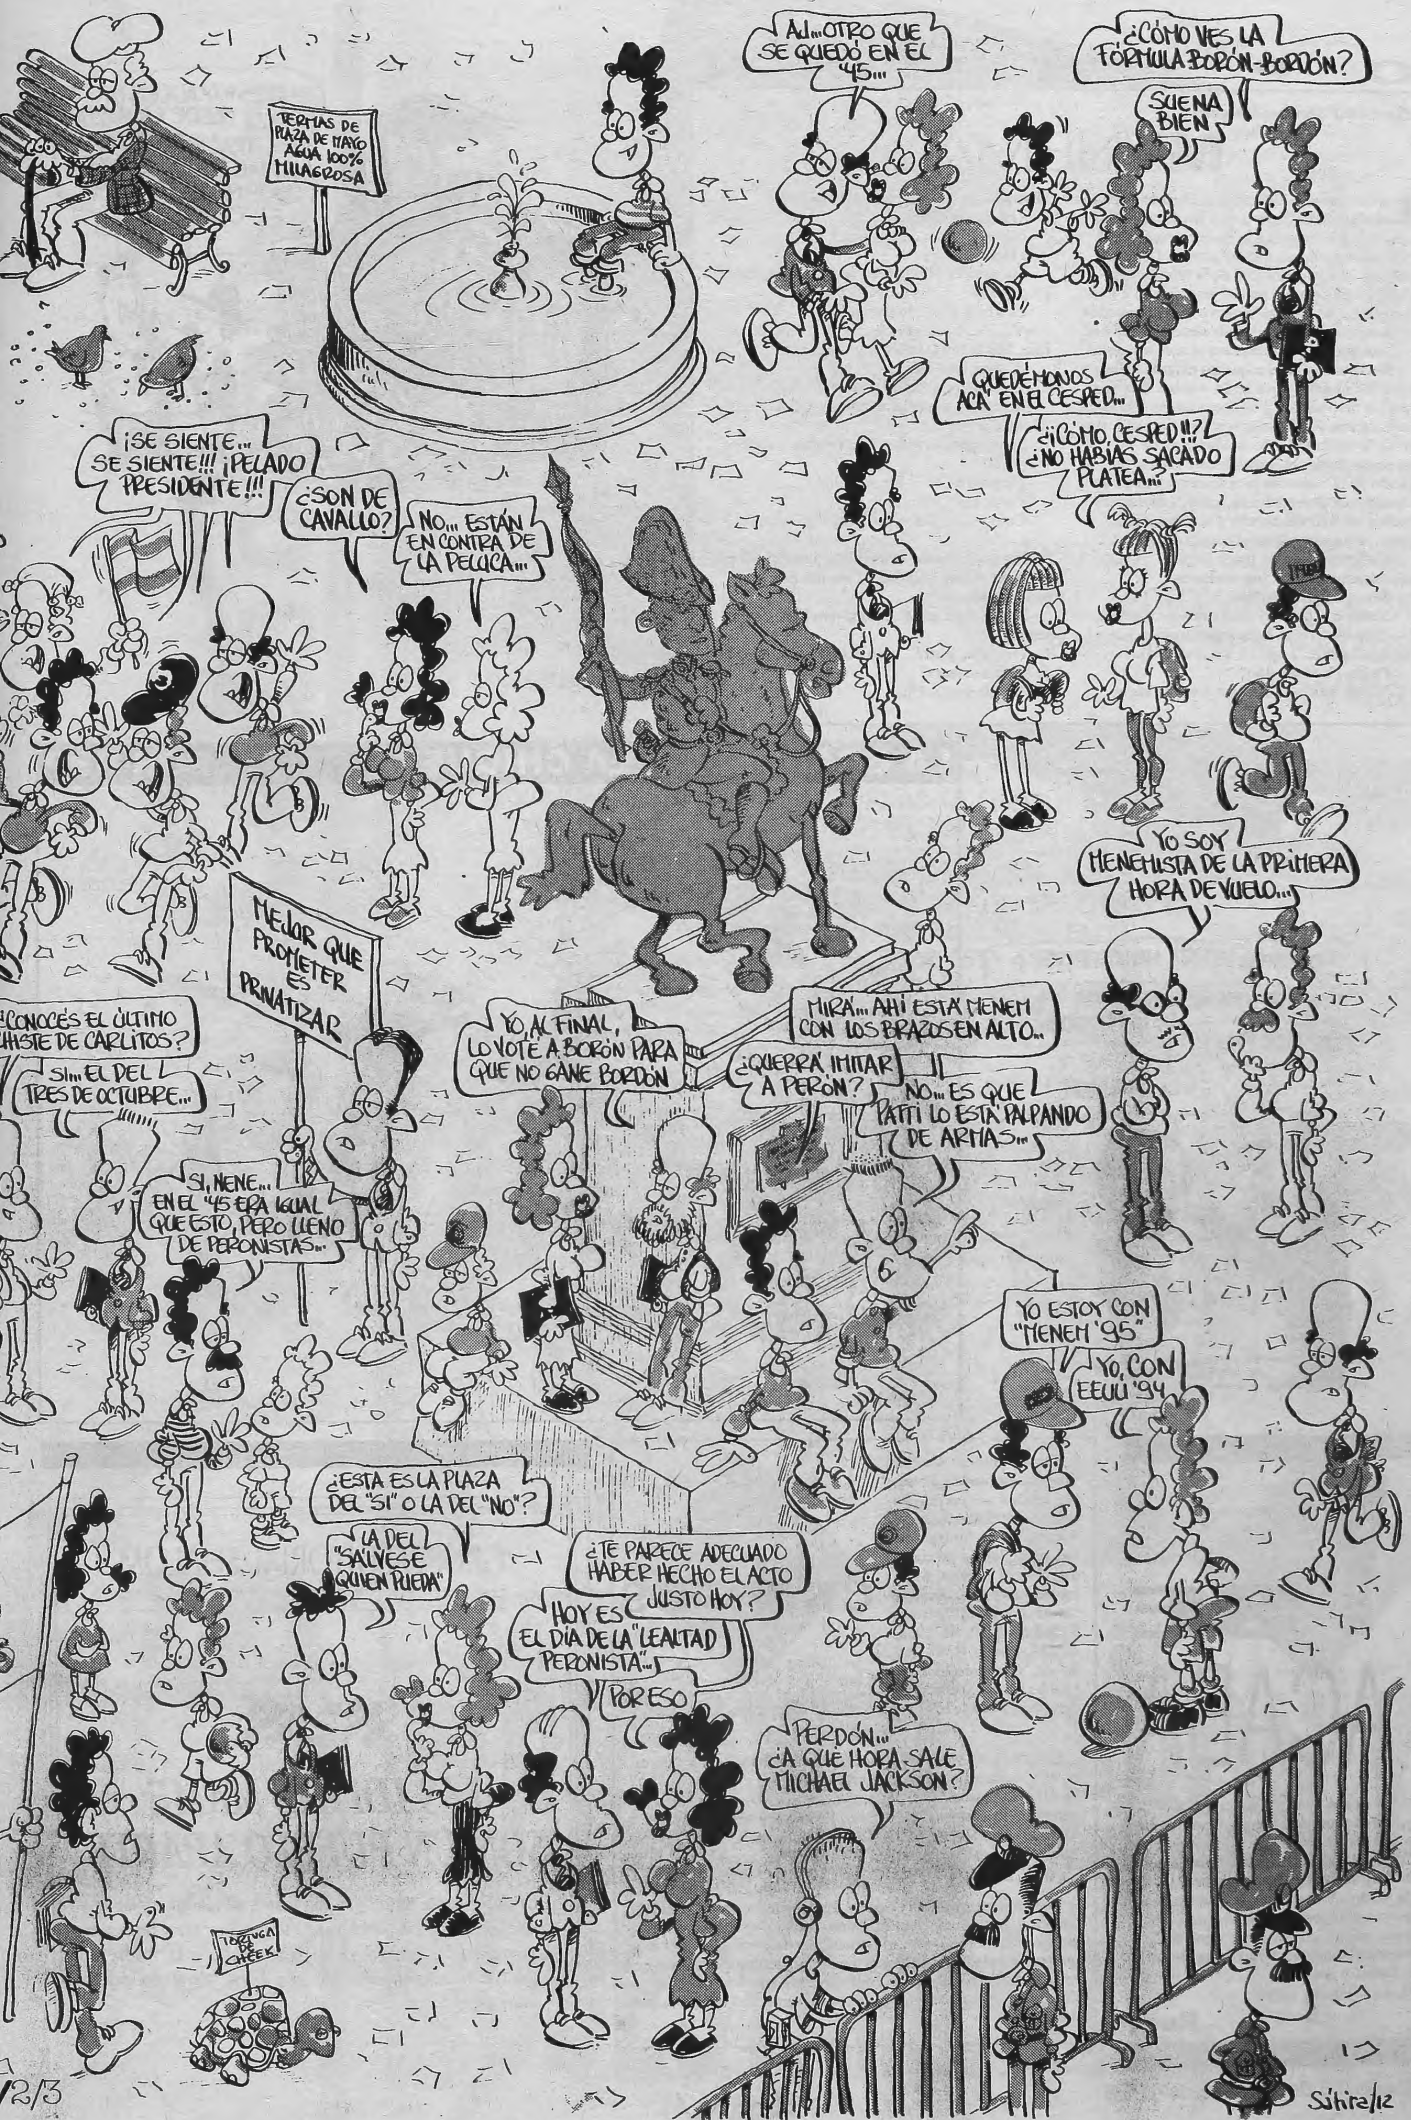 AJ...OTRO QUE
SE QUEDÓ EN EL
'45...
¿CÓMO VES LA
FÓRMULA BORÓN-BORDÓN?
SUENA
BIEN
TERMAS DE
PLAZA DE MAYO
AGUA 100%
MILAGROSA
QUEDÉMONOS
ACÁ EN EL CESPED...
¿¡CÓMO, CESPED!!?
¿NO HABÍAS SACADO
PLATEA..?
¡SE SIENTE...
SE SIENTE!!! ¡PELADO
PRESIDENTE!!!
¿SON DE
CAVALLO?
NO... ESTÁN
EN CONTRA DE
LA PELUCA...
YO SOY
MENEMISTA DE LA PRIMERA
HORA DE VUELO...
MEJOR QUE
PROMETER
ES
PRIVATIZAR
¿CONOCÉS EL ÚLTIMO
CHISTE DE CARLITOS?
SI... EL DEL
TRES DE OCTUBRE...
YO, AL FINAL,
LO VOTÉ A BORÓN PARA
QUE NO GANE BORDÓN
MIRÁ... AHÍ ESTÁ MENEM
CON LOS BRAZOS EN ALTO..
¿QUERRÁ IMITAR
A PERÓN?
NO... ES QUE
PATTI LO ESTÁ PALPANDO
DE ARMAS...
SI, NENE...
EN EL '45 ERA IGUAL
QUE ESTO, PERO LLENO
DE PERONISTAS...
YO ESTOY CON
"MENEM '95"
YO, CON
EEUU '94
¿ESTA ES LA PLAZA
DEL "SI" O LA DEL "NO"?
LA DEL
"SÁLVESE
QUIEN PUEDA"
¿TE PARECE ADECUADO
HABER HECHO EL ACTO
JUSTO HOY?
HOY ES
EL DÍA DE LA "LEALTAD
PERONISTA"...
POR ESO
PERDÓN...
¿A QUÉ HORA SALE
MICHAEL JACKSON?
TORTUGA
DE
CHEEK
/2/3
Sátira/12